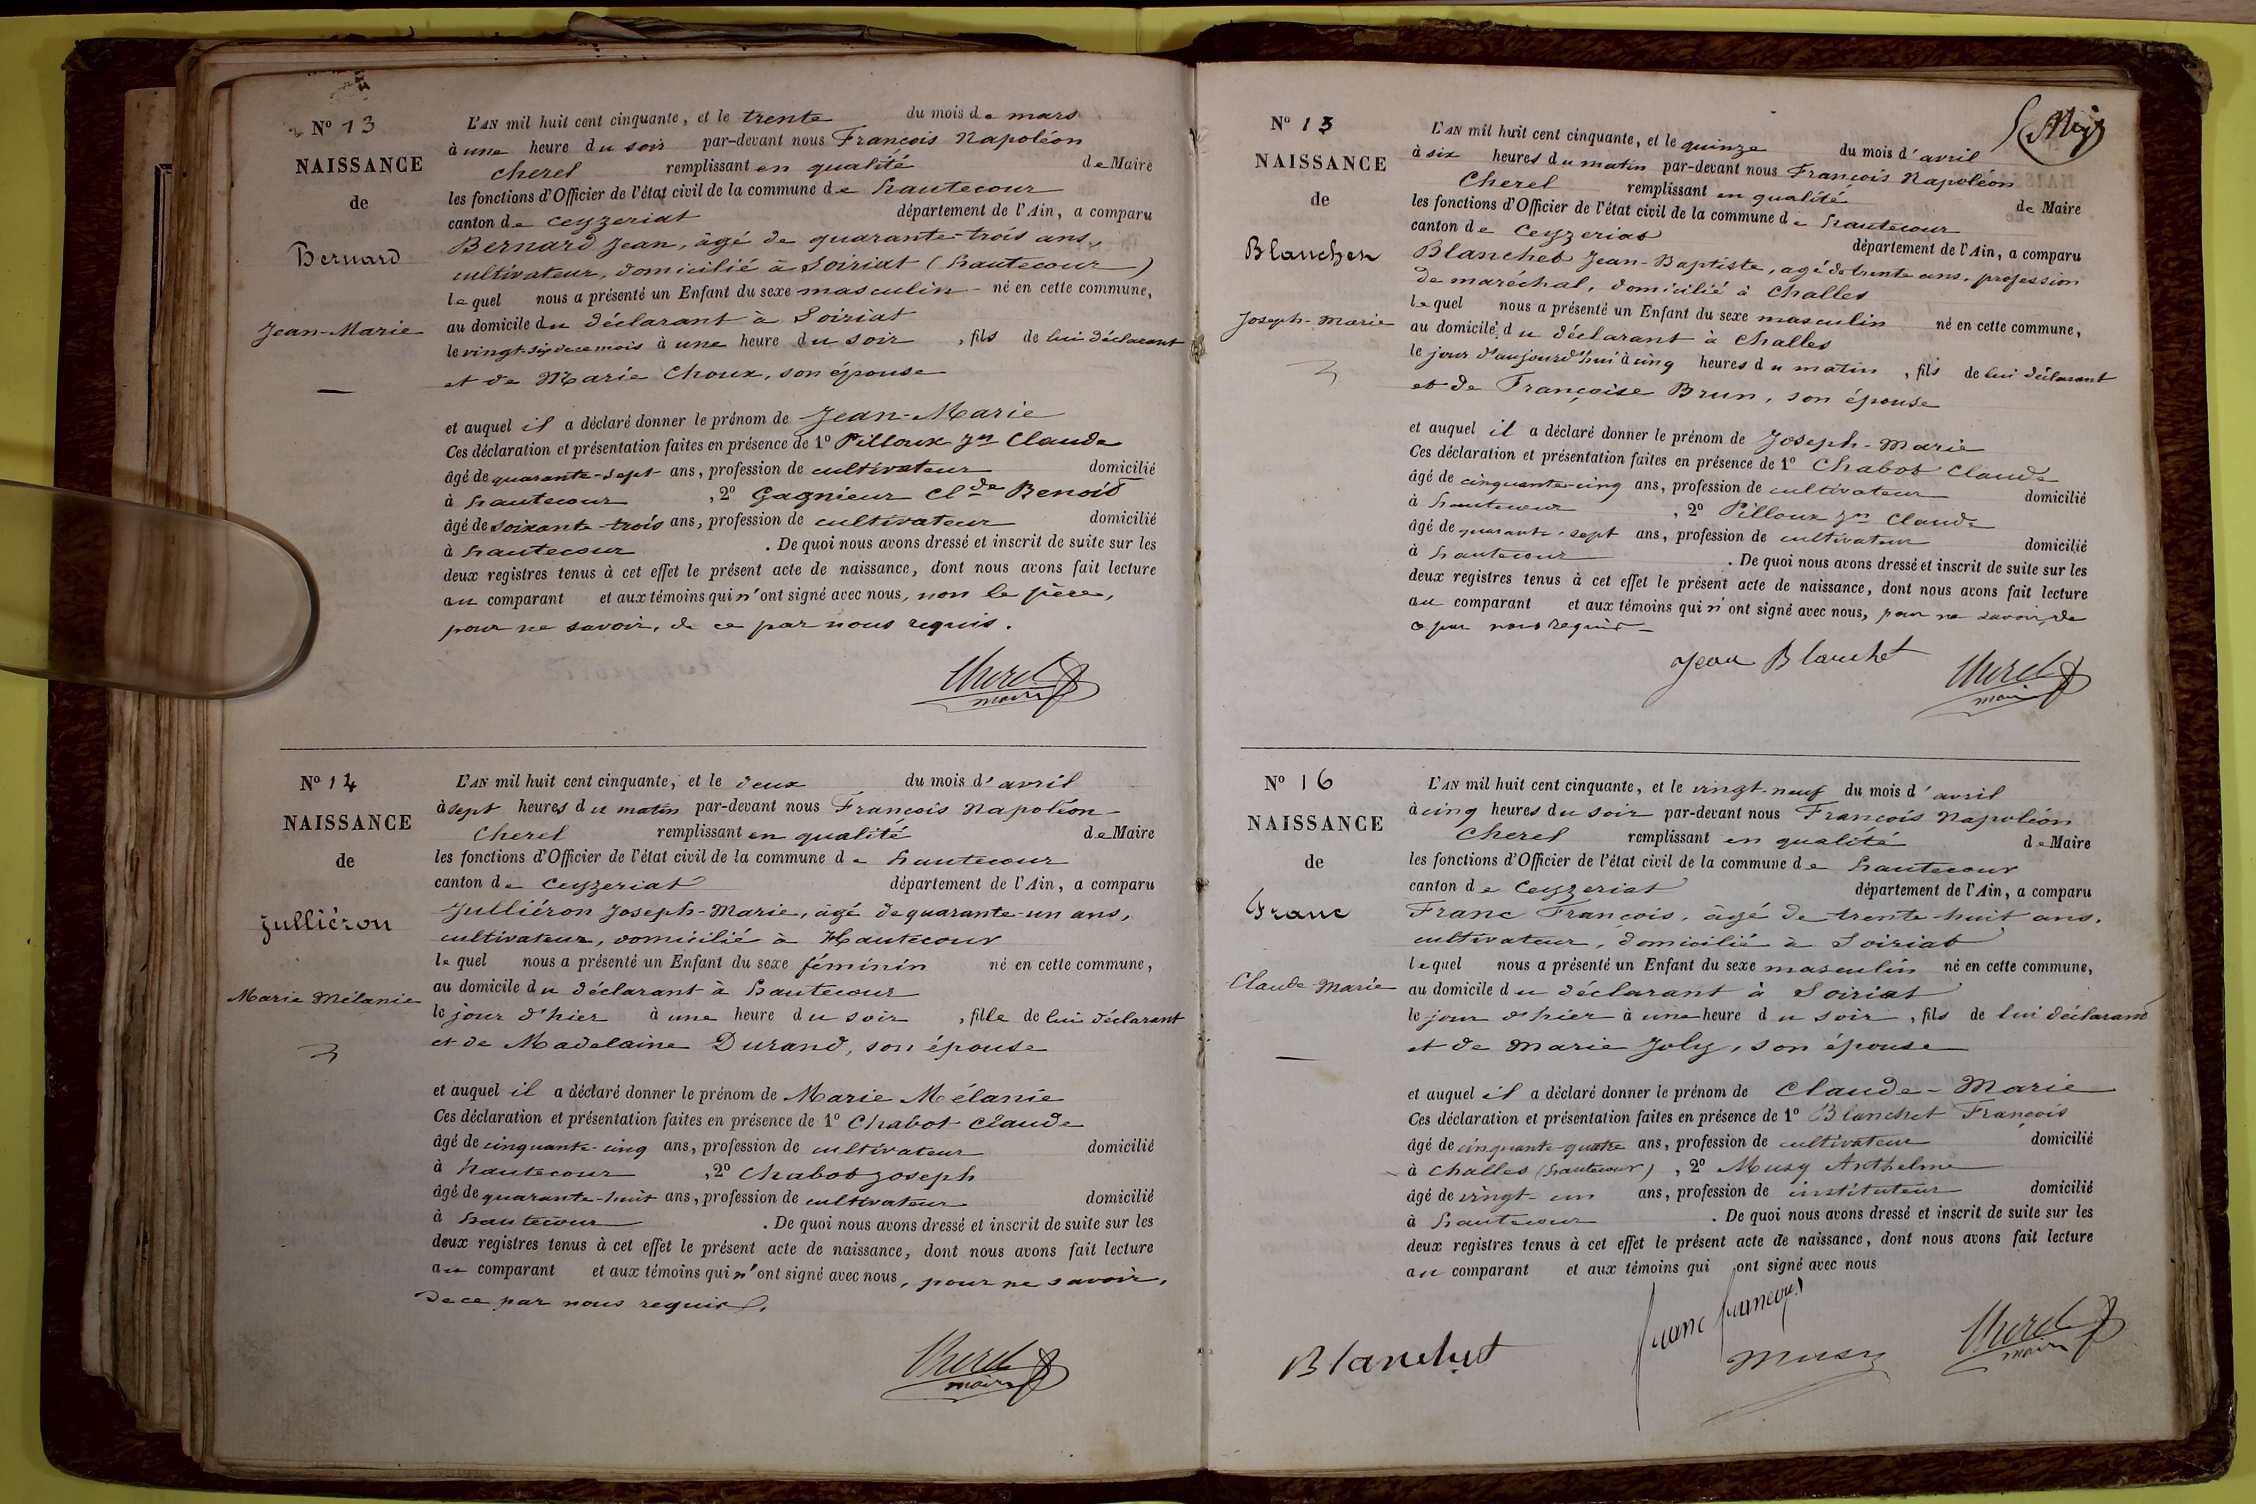 Nº 13
NAISSANCE
de
Bernard
Jean-Marie
L'AN mil huit cent cinquante, et le trente du mois de mars
à une heure du soir par-devant nous François Napoléon
Cherel remplissant en qualité de Maire
les fonctions d'Officier de l'état civil de la commune de hautecour
canton de Ceyzeriat département de l'Ain, a comparu
Bernard Jean, âgé de quarante-trois ans,
cultivateur, domicilié à Soiriat (hautecour)
lequel nous a présenté un Enfant du sexe masculin né en cette commune,
au domicile du déclarant à Soiriat
le vingt-six de ce mois à une heure du soir, fils de lui déclarant
et de Marie Choux, son épouse
et auquel il a déclaré donner le prénom de Jean-Marie
Ces déclaration et présentation faites en présence de 1º Pilloux Jn Claude
âgé de quarante-sept ans, profession de cultivateur domicilié
à hautecour, 2º Gagnieur Clde Benoit
âgé de soixante-trois ans, profession de cultivateur domicilié
à hautecour. De quoi nous avons dressé et inscrit de suite sur les
deux registres tenus à cet effet le présent acte de naissance, dont nous avons fait lecture
au comparant et aux témoins qui n'ont signé avec nous, non le père,
pour ne savoir, de ce par nous requis.
Cherel
maire
Nº 14
NAISSANCE
de
Julliéron
Marie Mélanie
L'AN mil huit cent cinquante, et le deux du mois d'avril
à sept heures du matin par-devant nous François Napoléon
Cherel remplissant en qualité de Maire
les fonctions d'Officier de l'état civil de la commune de hautecour
canton de Ceyzeriat département de l'Ain, a comparu
Julliéron Joseph-Marie, âgé de quarante-un ans,
cultivateur, domicilié à Hautecour
lequel nous a présenté un Enfant du sexe féminin né en cette commune,
au domicile du déclarant à hautecour
le jour d'hier à une heure du soir, fille de lui déclarant
et de Madelaine Durand, son épouse
et auquel il a déclaré donner le prénom de Marie Mélanie
Ces déclaration et présentation faites en présence de 1º Chabot Claude
âgé de cinquante-cinq ans, profession de cultivateur domicilié
à hautecour, 2º Chabot Joseph
âgé de quarante-huit ans, profession de cultivateur domicilié
à hautecour. De quoi nous avons dressé et inscrit de suite sur les
deux registres tenus à cet effet le présent acte de naissance, dont nous avons fait lecture
au comparant et aux témoins qui n'ont signé avec nous, pour ne savoir,
de ce par nous requis.
Cherel
maire
Nº 15
NAISSANCE
de
Blanchet
Joseph-Marie
L'AN mil huit cent cinquante, et le quinze du mois d'avril
à six heures du matin par-devant nous François Napoléon
Cherel remplissant en qualité de Maire
les fonctions d'Officier de l'état civil de la commune de hautecour
canton de Ceyzeriat département de l'Ain, a comparu
Blanchet Jean-Baptiste, agé de trente ans, profession
de maréchal, domicilié à Challes
lequel nous a présenté un Enfant du sexe masculin né en cette commune,
au domicile du déclarant à Challes
le jour d'aujourd'hui à cinq heures du matin, fils de lui déclarant
et de Françoise Brun, son épouse
et auquel il a déclaré donner le prénom de Joseph-Marie
Ces déclaration et présentation faites en présence de 1º Chabot Claude
âgé de cinquante-cinq ans, profession de cultivateur domicilié
à hautecour, 2º Pilloux Jn Claude
âgé de quarante-sept ans, profession de cultivateur domicilié
à hautecour. De quoi nous avons dressé et inscrit de suite sur les
deux registres tenus à cet effet le présent acte de naissance, dont nous avons fait lecture
au comparant et aux témoins qui n'ont signé avec nous, pour ne savoir, de
ce par nous requis
Jean Blanchet
Cherel
maire
Nº 16
NAISSANCE
de
Franc
Claude-Marie
L'AN mil huit cent cinquante, et le vingt-neuf du mois d'avril
à cinq heures du soir par-devant nous François Napoléon
Cherel remplissant en qualité de Maire
les fonctions d'Officier de l'état civil de la commune de hautecour
canton de Ceyzeriat département de l'Ain, a comparu
Franc François, âgé de trente-huit ans,
cultivateur, domicilié à Soiriat
lequel nous a présenté un Enfant du sexe masculin né en cette commune,
au domicile du déclarant à Soiriat
le jour d'hier à une heure du soir, fils de lui déclarant
et de Marie Joly, son épouse
et auquel il a déclaré donner le prénom de Claude-Marie
Ces déclaration et présentation faites en présence de 1º Blanchet François
âgé de cinquante-quatre ans, profession de cultivateur domicilié
à Challes (hautecour), 2º Musy Anthelme
âgé de vingt-un ans, profession de instituteur domicilié
à hautecour. De quoi nous avons dressé et inscrit de suite sur les
deux registres tenus à cet effet le présent acte de naissance, dont nous avons fait lecture
au comparant et aux témoins qui ont signé avec nous
franc françois
Blanchet
Musy
Cherel
maire